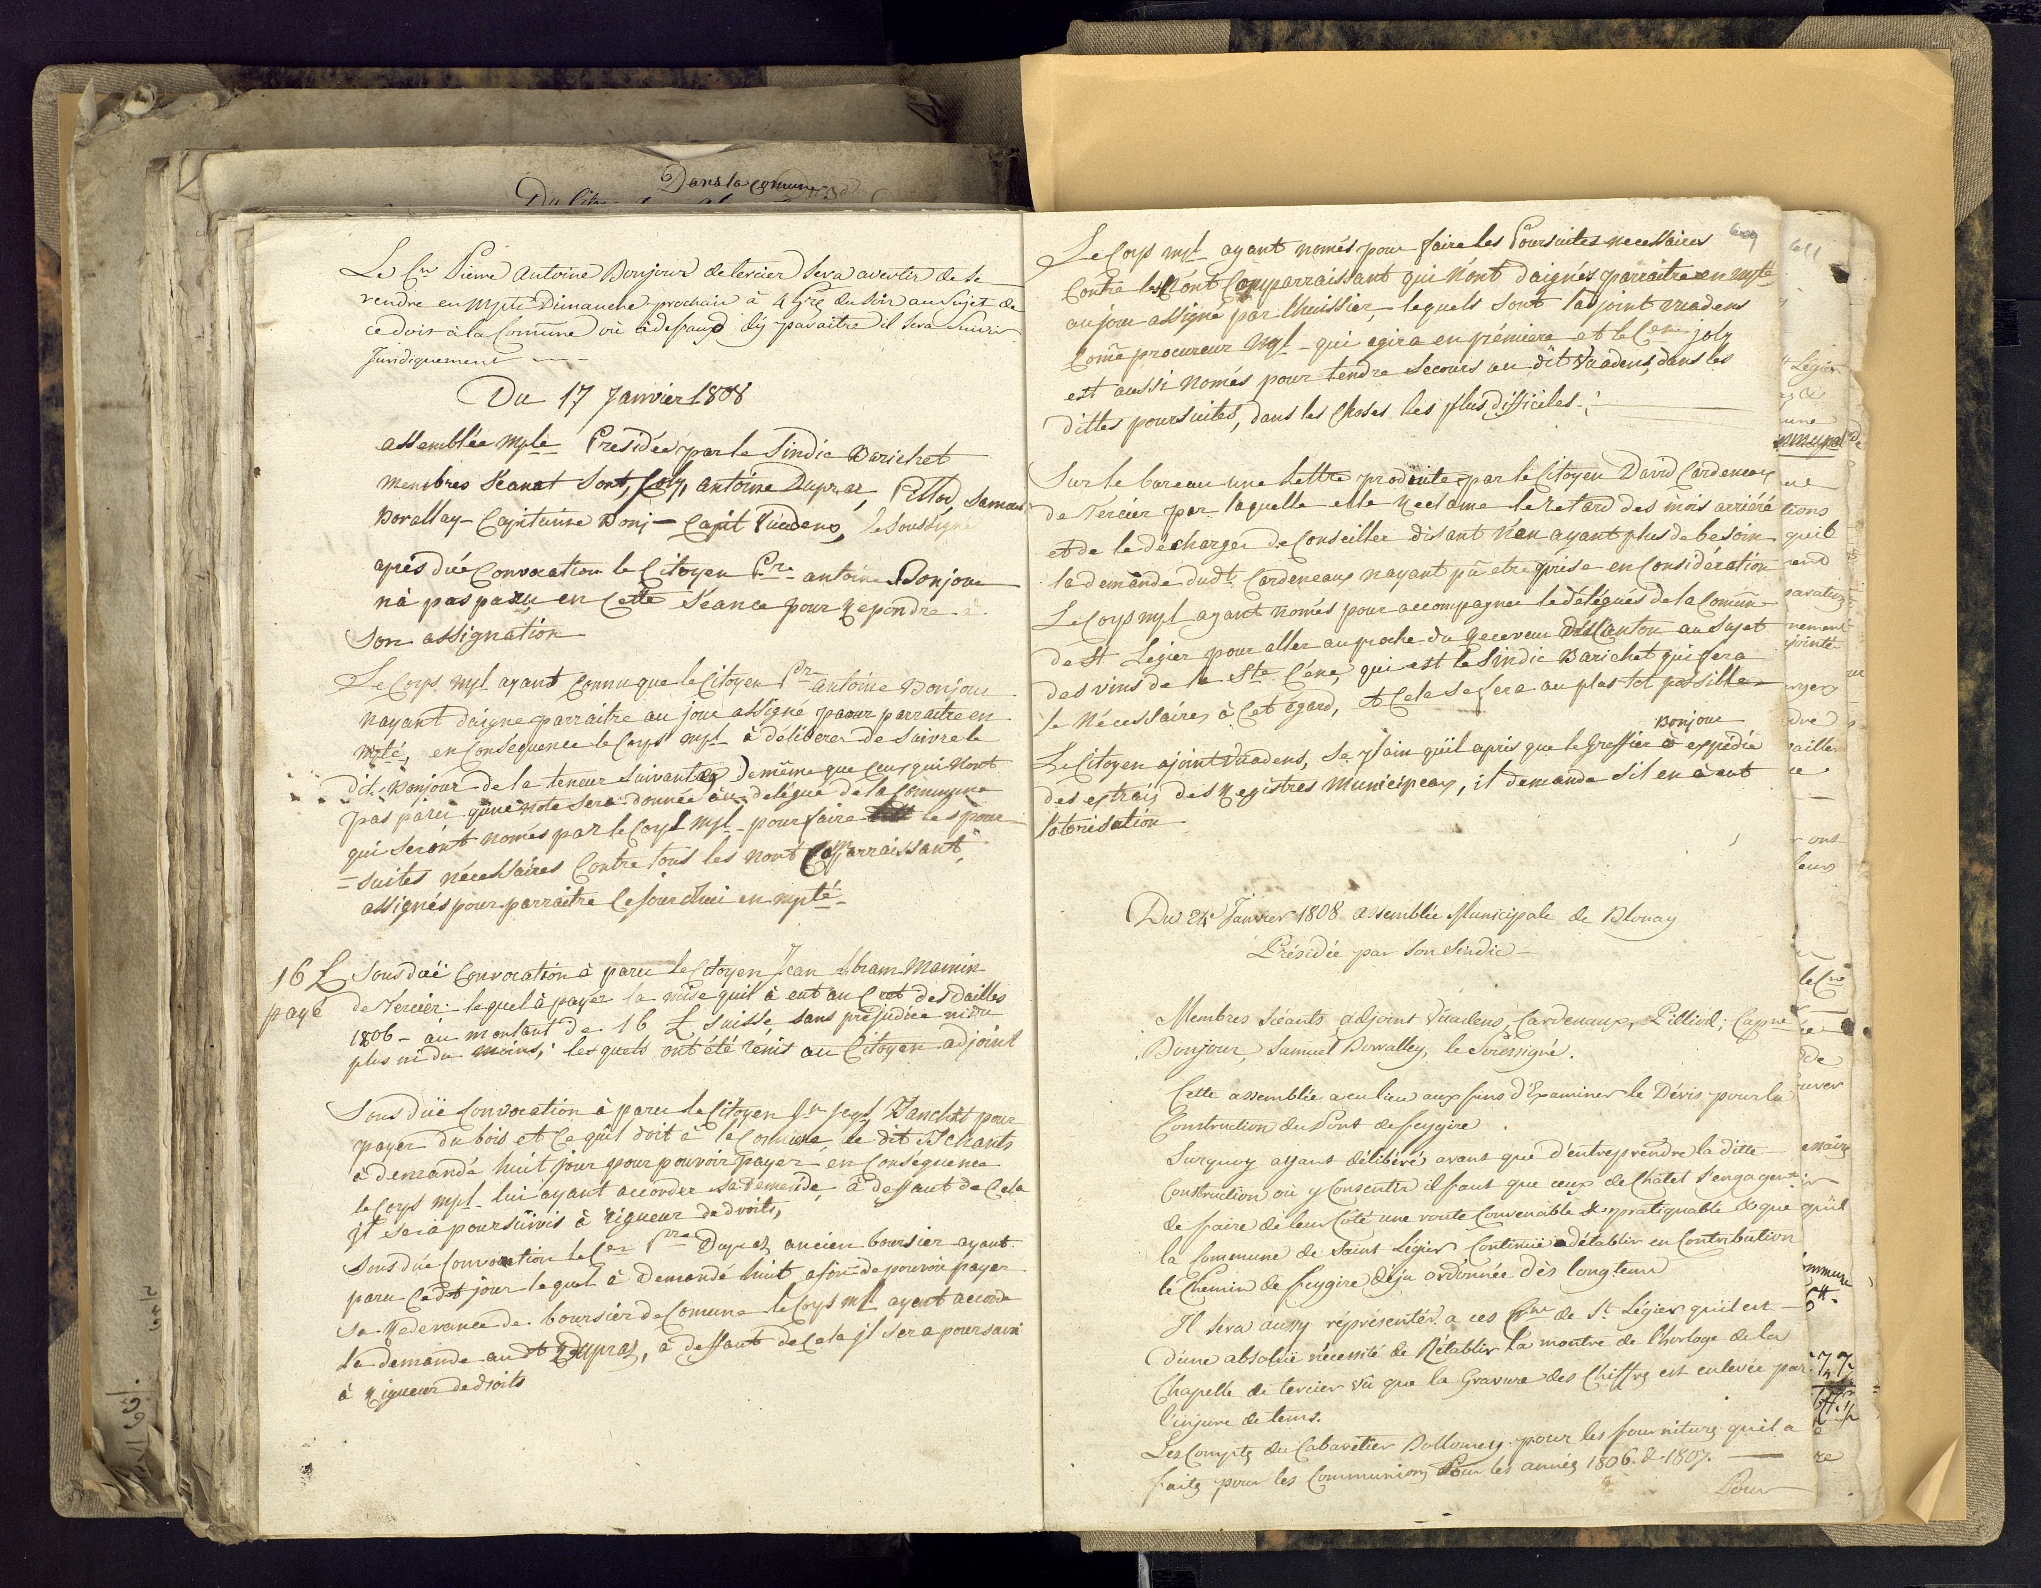 Dans la comune
Le Cen Pierre Antoine Bonjour de tercier Sera avertir de se
rendre en mpté Dimanche prochain à 4 hres du Soir au Sujet de
ce doit à la Comune où à defaud d'ÿ paraitre il Sera Suivis
Juridiquement
Du 17 Janvier 1808
assemblée mple Presidée par le Sindic Barichet
membres Séanat Sont, Joly, antoine Dupraz, Pilliod, Samuel
Borallay Capitaine Bonj Capit Vuadens, le Soussigné
après düe Convocation le Citoyen Pre antoine Bonjour
n'à pas paru en Cette Séance pour Repondre à
Son assignation
Le Corps mpl ayant Connu que le Citoyen Pre antoine Bonjour
nayant daigne parraitre au jour assigné pour parraitre en
mpté, en Conséquence le Corps mpl à déliberer de Suivre le
dit Bonjour de la teneur Suivante, Demême que Ceux qui nont
pas paru qune note Sera donnée au délégue de la Commune
qui Seront només par le Corps mpl pour faire les pour
=suites nécessaires Contre tous les nont Comparraissant,
assignés pour parraitre Ce jourdhui en mpté
16 L Sous düe Convocation à paru le Citoyen Jean Abram Mamin
payé de Tercier lequel à payer la mise quil à eut au Cret des dailles
1806 au montant de 16 L Suisse, sans préjudice ni du
plus ni du moins; lesquels ont été remis au Citoyen adjoint
Sous düe Convocation à paru le Citoyen
payer du bois et Ce qu'il doit à la Comune le dit
à demandé huit jour pour pouvoir payer en Conséquence
le Corps mpl lui ayant accorder Sa Demende, à deffaut de Cela
jl Sera poursuivis à Rigueur de droits,
Sous düe Convocation le Cen Pre Dupraz ancien boursier ayant
paru Cedt jour lequel à Demandé huit afin de pouvoir payer
Sa Redevance de boursier de Comune le Corps mpl ayant accordé
la demande audt Dupraz, à deffaut de Cela jl Sera poursuivi
à Rigueur de droits
Le Corps mpl ayant només pour faire les Poursuites necessaires
Contre les nont Comparraissant qui n'ont daignés parraitre en mpté
au jour assigné par lhuissier lequels Sont l'adjoint Vuadens
Comé procureur mpl qui egira en prémiere et le Cen joly
est aussi només pour tendre Secours au dit Vuadens, dans les
dittes poursuites, dans les Choses les plus difficiles;
Sur le bureau une lettre produite par le Citoyen David Cardeneaux
de Tercier par laquelle elle Reclame le Retard des mois arriéré
et de le décharger de Conseiller disant n'en ayant plus de besoin
la demande dudt Cardeneaux nayant pû etre prise en Considération
Le Corps mpl ayant només pour accompagner le délégués de la Comun
de St Legier pour aller auproche du Receveur du Canton au Sujet
des vins de la Ste Céne, qui est le Sindic Barichet qui fera
le Nécessaires à Cet égard, et Cela Se fera au plus tot possible
Bonjour
Le Citoyen ajoint Vuadens, Se plain qüil apris que le Greffier à expédié
des extrais des Registres Municipeaux, il demande S'il en à eut
lotorisation
Du 24e Janvier 1808 assemblée Municipale de Blonay
Présidée par Son Sindic
Membres Séants adjoint Vuadens, Cardenaux, Pilliod, Capne
Bonjour, Samuel Borralley, le Soussigné.
Cette assemblée a eu lieu aux fins d'Examiner le Dévis pour la
Construction du Pont de feygire
Surquoy ayant délibéré avant que d'entreprendre la ditte
Construction où y Consentir il faut que ceux de Châtel S'engagent
de faire de leur Coté une route Convenable & pratiquable & que
la Commune de Saint Légier Continüe a détablir en Contribution
le Chemin de feygire déja ordonnée dès longtems
Il Sera aussy réprésenter a ces Cne de St Légier qu'il est
d'une absolüe nécessité de Rétablir la montre de l'horloge de la
Chapelle de tercier vû que la Gravure des Chiffres est enlevée par
l'injure de tems.
Les Compts du Cabaretier Dollomey pour les fournitures qu'il a
faits pour les Communions Pour les années 1806 & 1807.
Pour